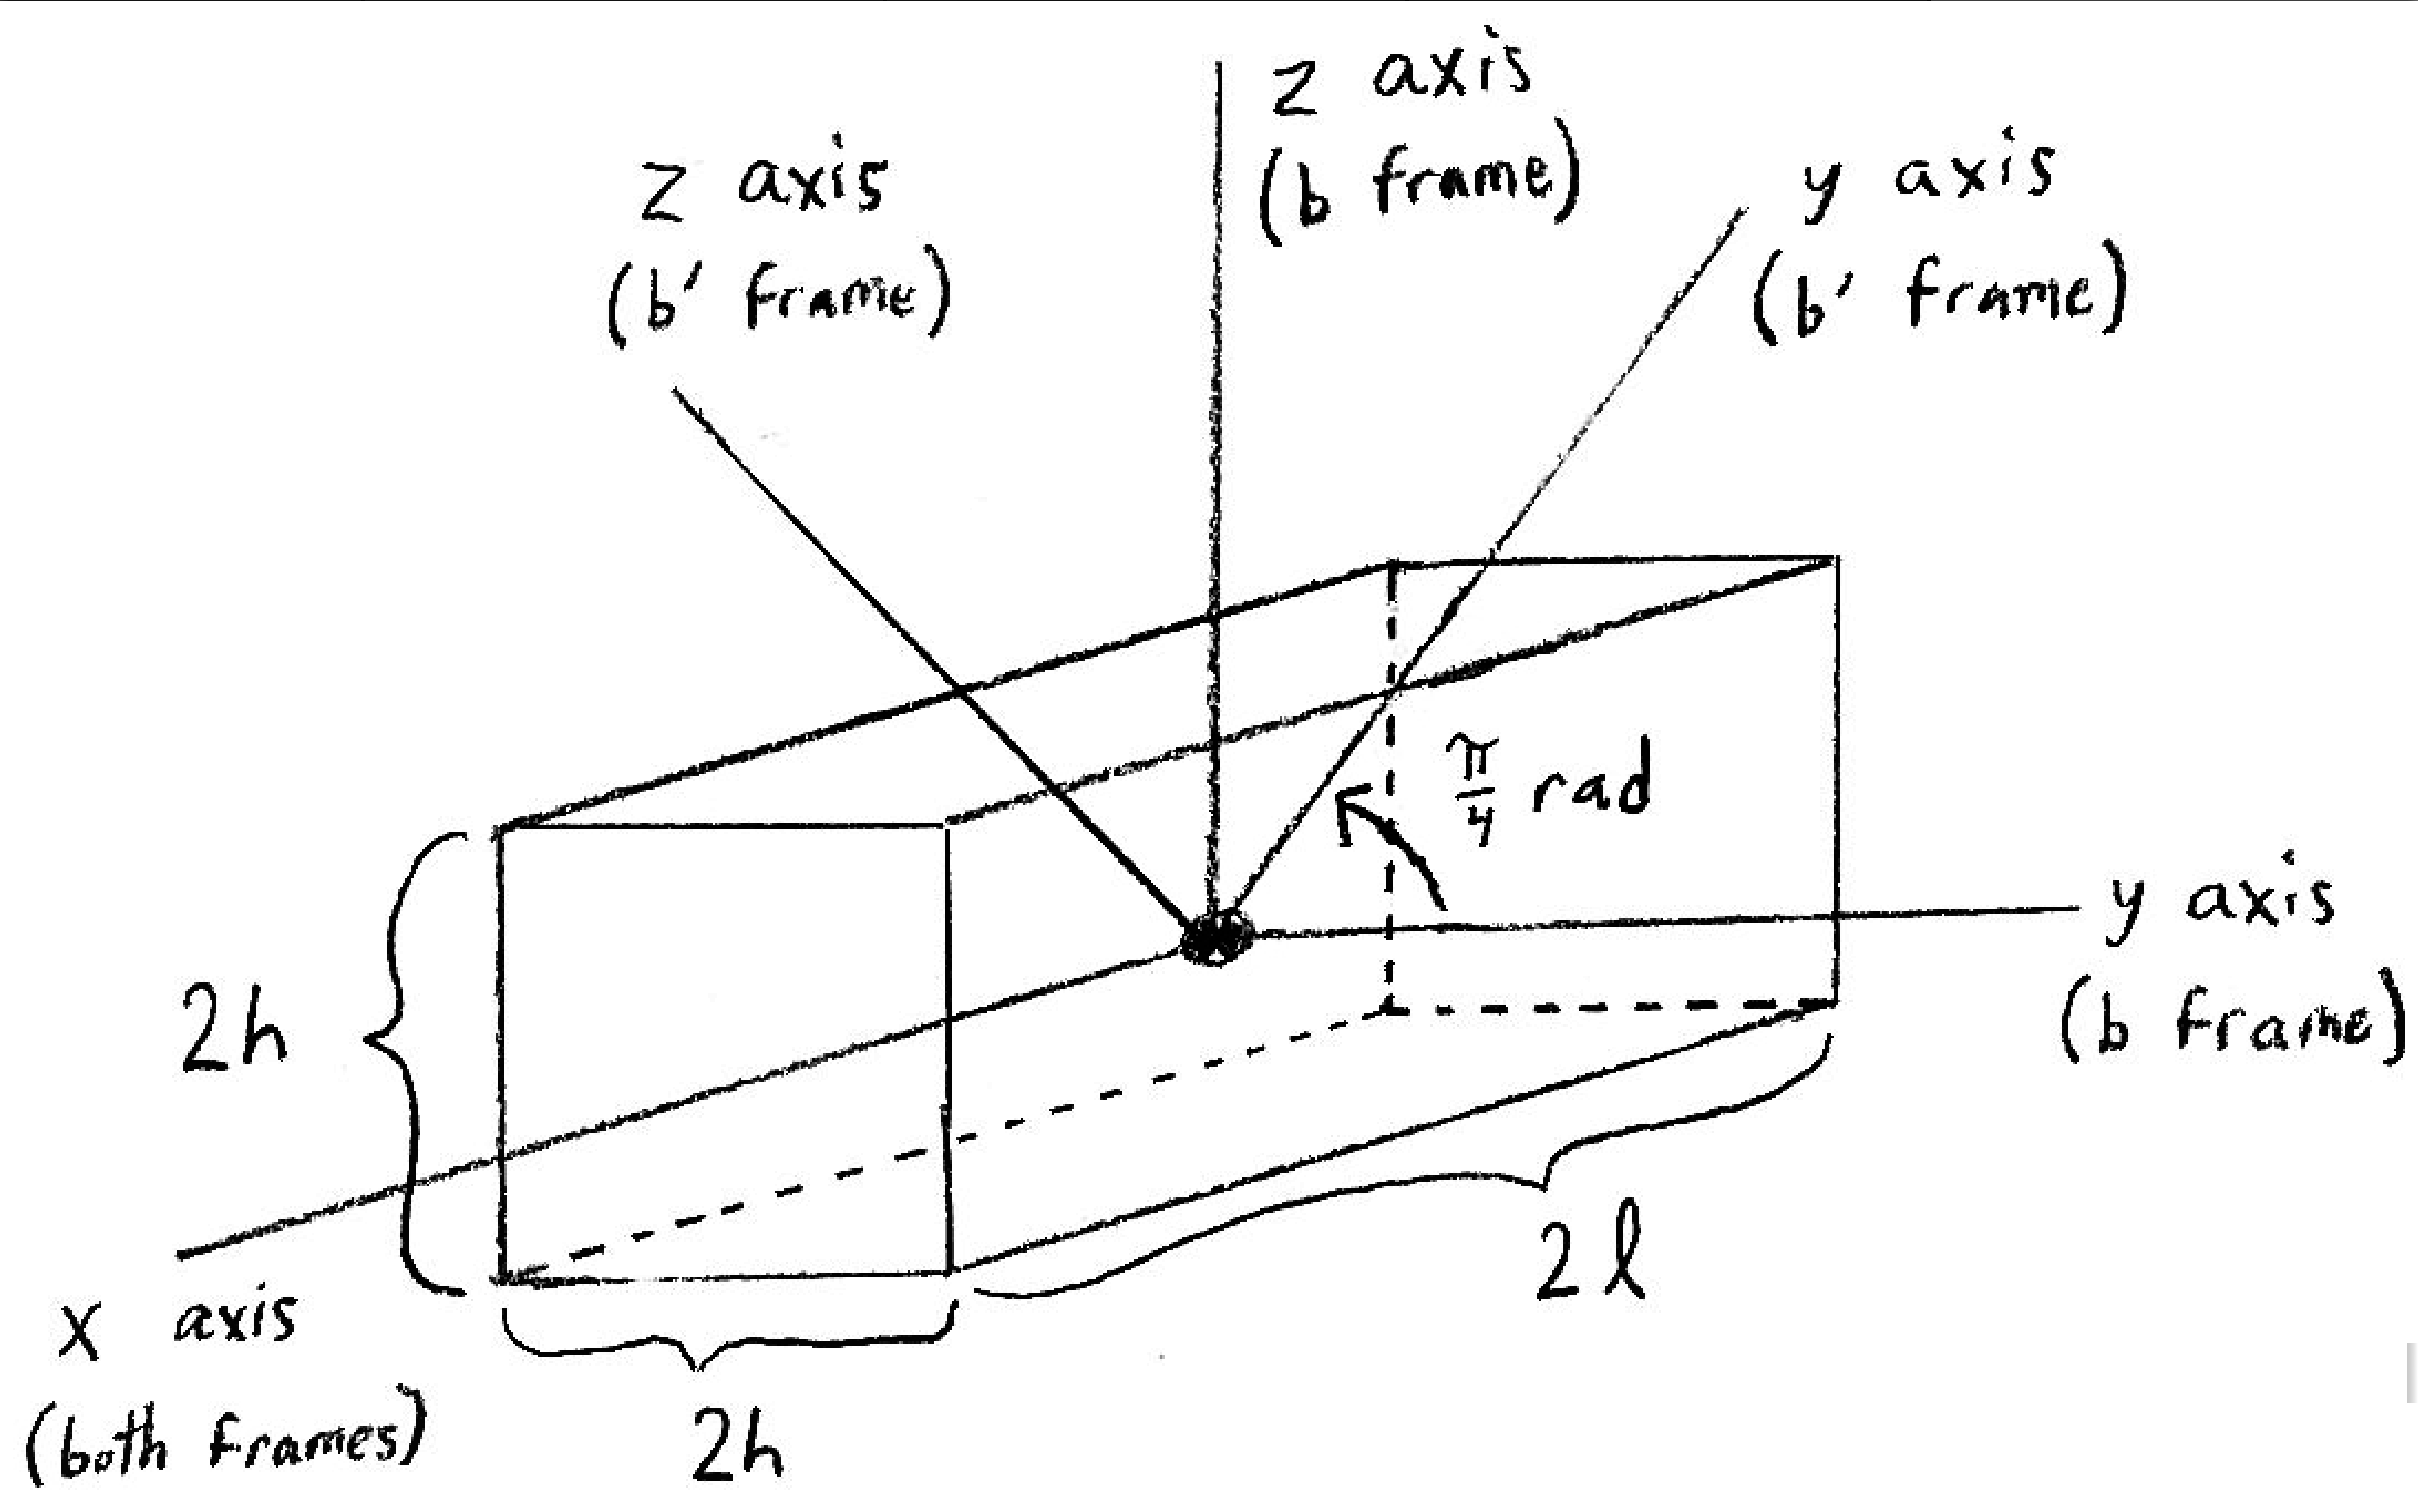 z axis
(b frame)
z axis
(b' frame)
y axis
(b' frame)
π/4 rad
y axis
(b frame)
2h
2l
x axis
(both frames)
2h